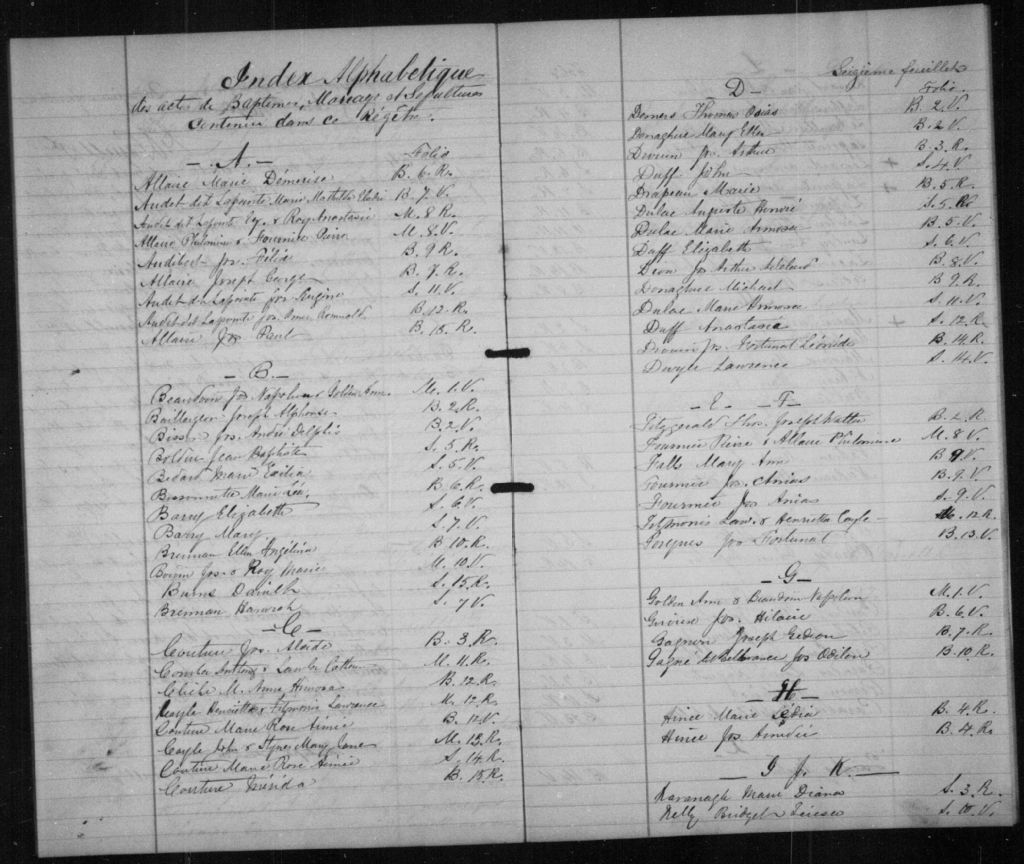 Index Alphabétique
des actes de Baptêmes, Mariage et Sépultures
Contenu dans ce Régître.
- A. -
Folio
Allaire Marie Démerise B. 6. R.
Audet dit Lapointe Marie Mathilda B. 7. V.
Audet dit Lapointe & Roy Anastasie M. 8. R.
Allaire Philomène & Fournier Pierre M. 8. V.
Audibert Jos. Félix B. 9. R.
Allaire Joseph George B. 9. R.
Audet dit Lapointe Jos Eugène S. 11. V.
Audet dit Lapointe Jos. Omer Romuald B. 12. R.
Allaire Jos Paul B. 15. R.
- B. -
Beaudoin Jos Napoléon & Golden Anne M. 1. V.
Baillargeon Joseph Alphonse B. 2. R.
Bisson Jos. André Delphis B. 2. V.
Bolduc Jean Baptiste S. 5. R.
Bédard Marie Exilia S. 5. V.
Marie Léa, B. 6. R.
Barry Elizabeth S. 6. V.
Barry Mary S. 7. V.
Brennan Ellen Angélina B 10. R.
Jos. & Roy Marie M. 10. V.
Burns S. 15. R.
Brennan Hannorah S. 7 V.
- C -
Couture Jos. Alcide B. 3. R.
& Lawlor M. 11. R.
Cliche M. Anna B. 12. R.
Coyle Henrietta & Fitzmoris Lawrence M. 12. R.
Couture Marie Rose Aimée B. 12. V.
Coyle John & Mary Jane M. 13. R.
Couture Marie Rose Aimée S. 14. R.
Couture Mérida B. 15. R.
Seizième feuillet
- D -
Folio.
Demers Thomas Osias B. 2. V.
Donaghue Mary Ellen B. 2. V.
Drouin Jos. Arthur B. 3. R.
Duff John S. 4. V.
Drapeau Marie B. 5. R.
Dulac Auguste Honoré S. 5. R
Dulac Marie Armosa B. 5. V.
Duff Elizabeth S. 6. V.
Dion Jos Arthur B. 8. V.
Donaghue Michael B. 9. R.
Dulac Marie Armosa S. 11. V.
Duff Anastasia S. 12. R.
Drouin Jos. Fortunat Léonide B. 14. R.
Doyle Lawrence S. 14. V.
- E - F -
Fitzgerald Thos. Joseph Walter B. 2. R.
Fournier Pierre & Allaire Philomène M. 8 V.
Falls Mary Ann B 9 V.
Fournier Jos. Anias B. 9. V.
Fournier Jos Anias S. 9. V.
Fitzmoris Law. & Henrietta Coyle - M. 12. R.
Forgues Jos Fortunat B. 13. V.
- G -
Golden Ann & Beaudoin Napoléon M. 1. V.
Jos. Hilaire B. 6. V.
Gagnon Joseph Gédéon B. 7. R.
Gagné Jos Odilon B. 10. R.
- H -
Hince Marie Lédia B. 4. R.
Hince Jos Amédée B. 4. R.
- I J. K. -
Kavanagh Marie Diana S. 3. R.
Kelly Bridget S. 10. V.